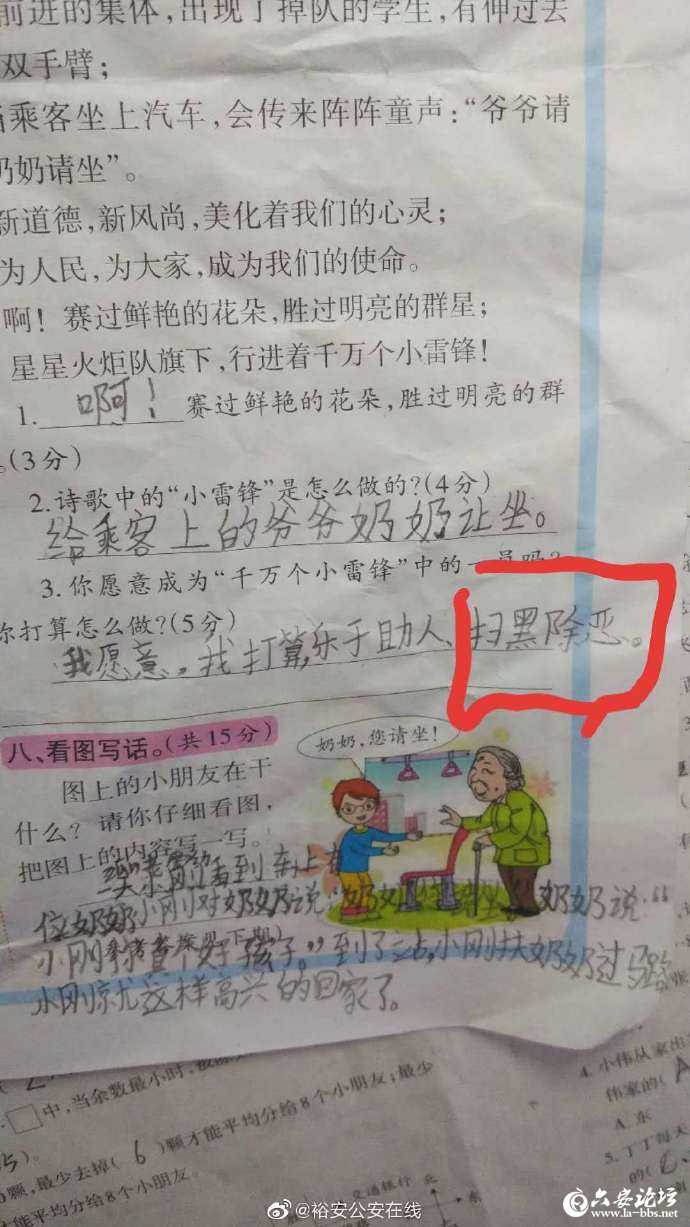 前进的集体,出现了掉队的学生,有伸过去
双手臂;
当乘客坐上汽车,会传来阵阵童声:“爷爷请
奶奶请坐”。
新道德,新风尚,美化着我们的心灵;
为人民,为大家,成为我们的使命。
啊!赛过鲜艳的花朵,胜过明亮的群星;
星星火炬队旗下,行进着千万个小雷锋!
1.啊!赛过鲜艳的花朵,胜过明亮的群
。(3分)
2.诗歌中的“小雷锋”是怎么做的?(4分)
给乘客上的爷爷奶奶让坐。
3.你愿意成为“千万个小雷锋”中的一员吗?
你打算怎么做?(5分)
我愿意。我打算乐于助人、扫黑除恶。
八、看图写话。(共15分)
奶奶,您请坐!
图上的小朋友在干
什么?请你仔细看图,
把图上的内容写一写。
小刚看到车上有
位奶奶小刚对奶奶说“奶奶 奶奶说:“
小刚 好孩子。”到了站,小刚扶奶奶过马路
小刚就这样高兴的回家了。
中,当余数最小时,
颗,最少去掉(6)颗才能平均分给8个小朋友;最少
能平均分给8个小朋友。
4.小伟从家出
伟家的(
A.东
5.丁丁每天
的(
@裕安公安在线
六安论坛
www.la-bbs.net